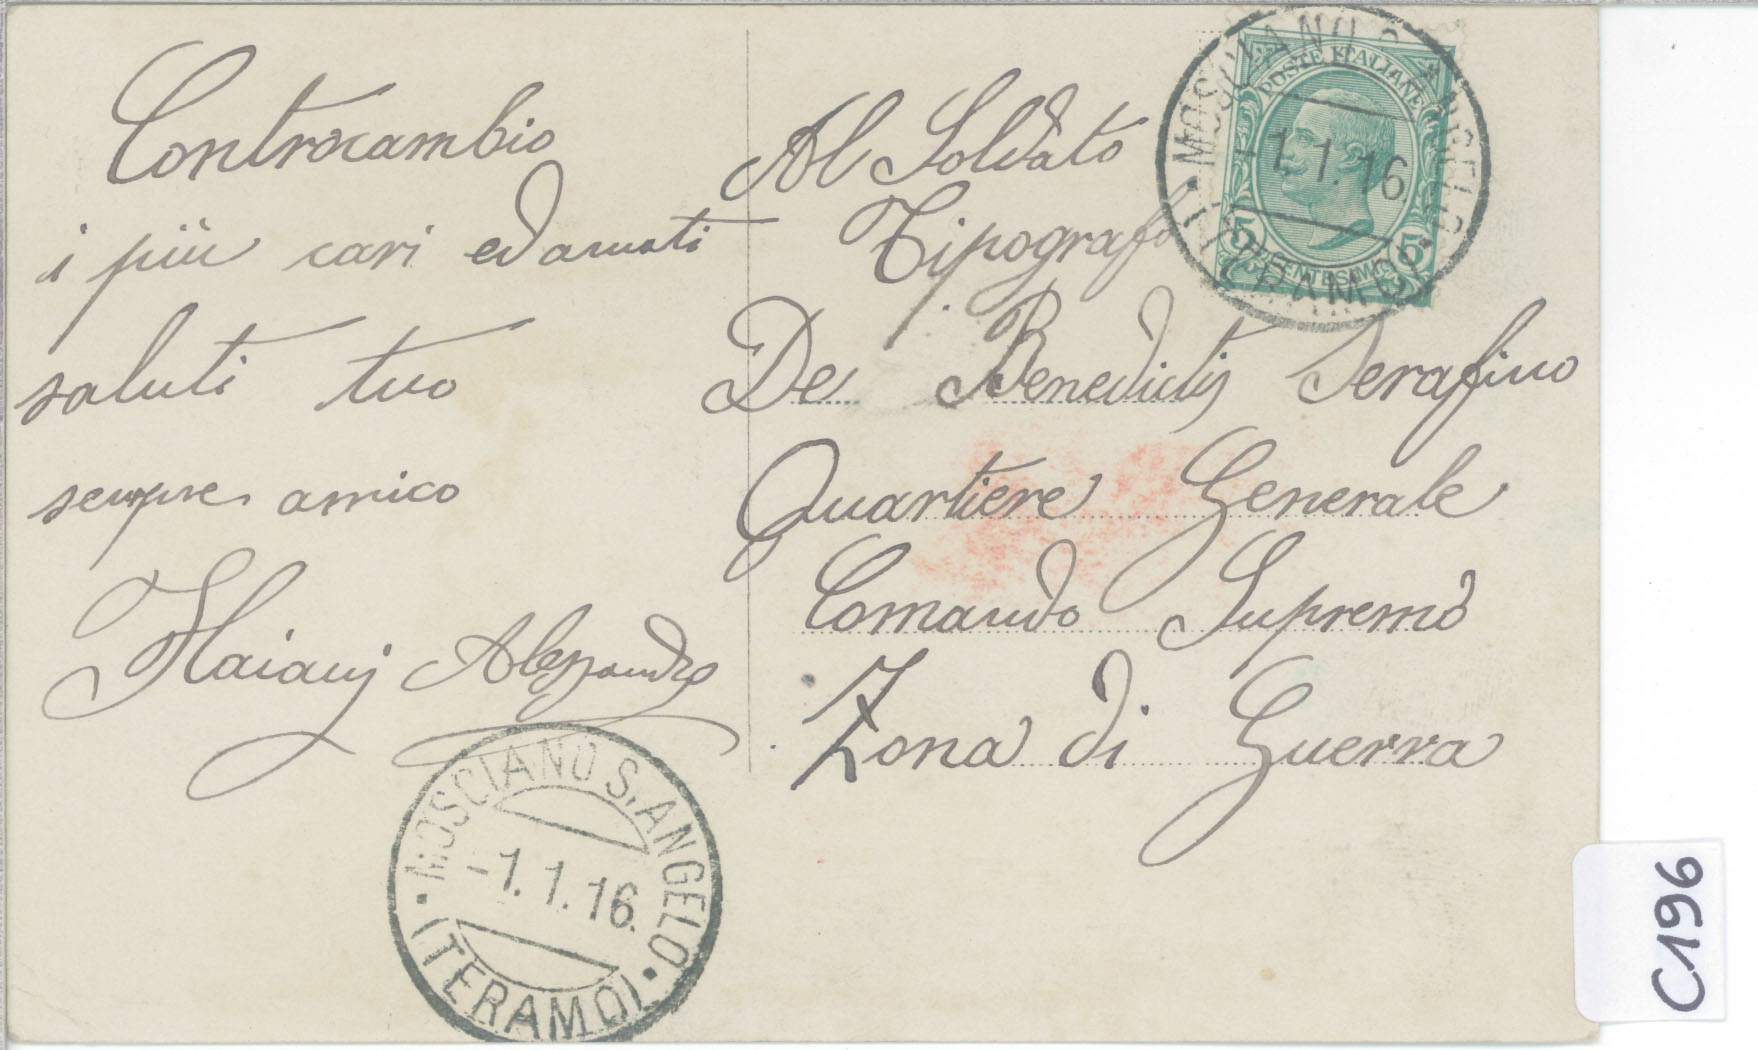 Contracambio
i più cari ed amati
saluti tuo
sempre amico
Flaiani Alessandro
MOSCIANO S. ANGELO
-1.1.16.
(TERAMO)
POSTE ITALIANE
MOSCIANO S. ANGELO
-1.1.16
(TERAMO)
5 CENTESIMI 5
Al Soldato
Tipografo
De Benedictis Serafino
Quartiere Generale
Comando Supremo
Zona di Guerra
C196